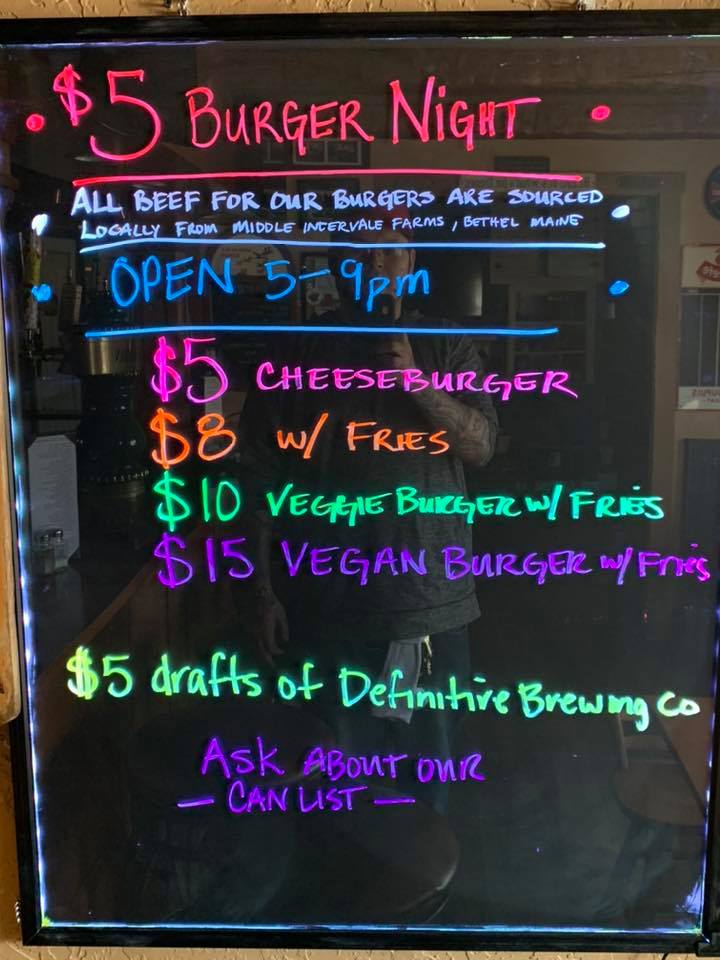 $5 BURGER NIGHT
ALL BEEF FOR OUR BURGERS ARE SOURCED
LOCALLY FROM MIDDLE INTERVALE FARMS, BETHEL MAINE
OPEN 5-9pm
$5 CHEESEBURGER
$8 w/ FRIES
$10 VEGGIE BURGER w/ FRIES
$15 VEGAN BURGER w/ Fries
$5 drafts of Definitive Brewing Co
Ask ABOUT OUR
— CAN LIST —